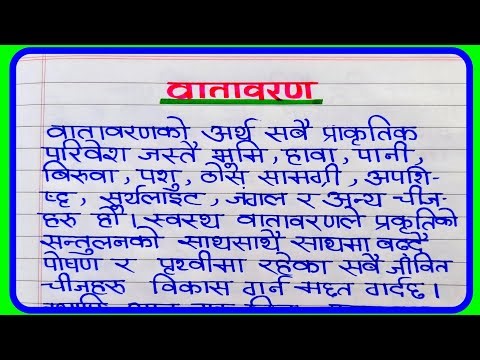 वातावरण
वातावरणको अर्थ सबै प्राकृतिक
परिवेश जस्तै भूमि, हावा, पानी,
बिरुवा, पशु, ठोस सामग्री, अपशि-
ष्ट, सुर्यलाइट, जंगल र अन्य चीज-
हरु हो। स्वस्थ वातावरणले प्रकृतिको
सन्तुलनको साथसाथै साथमा बढ्दै
पोषण र पृथ्वीमा रहेका सबै जीवित
चीजहरु विकास गर्न मद्दत गर्दछ।